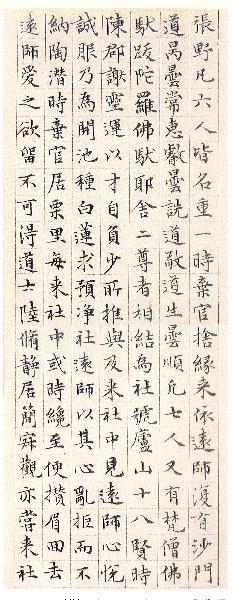 張野凡六人皆名重一時棄官捨緣來依遠師復有沙門
道昺曇常惠叡曇詵道敞道生曇順凡七人又有梵僧佛
馱跋陀羅佛馱耶舍二尊者相結為社號廬山十八賢時
陳郡謝靈運以才自負少所推與及來社中見遠師心悅
誠服乃為開池種白蓮求預净社遠師以其心亂拒而不
納陶潛時棄官居栗里每來社中或時纔至便攢眉回去
遠師愛之欲留不可得道士陸脩静居簡寂觀亦嘗來社